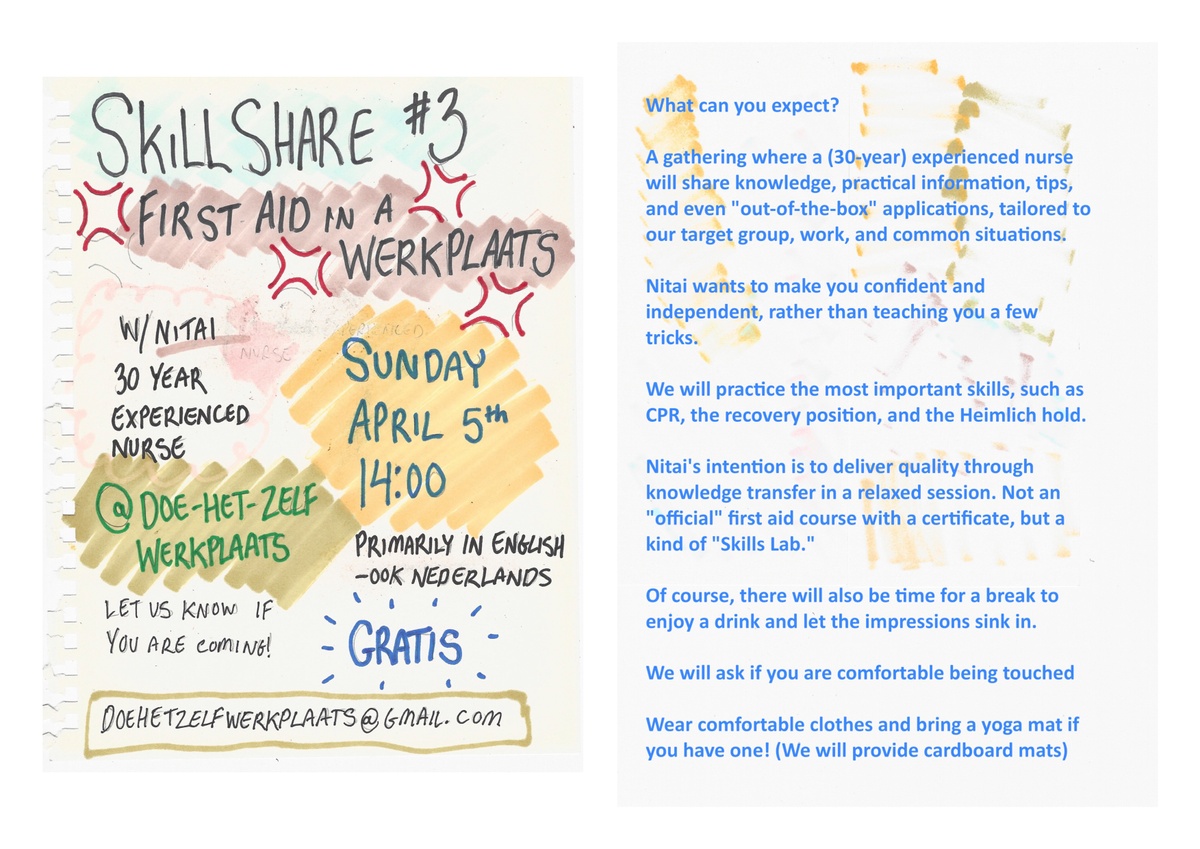 SKILL SHARE #3
FIRST AID IN A
WERKPLAATS
W/ NITAI
30 YEAR
EXPERIENCED
NURSE
EXPERIENCED
NURSE
SUNDAY
APRIL 5th
14:00
@ DOE-HET-ZELF
WERKPLAATS
PRIMARILY IN ENGLISH
-OOK NEDERLANDS
LET US KNOW IF
YOU ARE COMING!
GRATIS
DOEHETZELFWERKPLAATS@GMAIL.COM
What can you expect?
A gathering where a (30-year) experienced nurse
will share knowledge, practical information, tips,
and even "out-of-the-box" applications, tailored to
our target group, work, and common situations.
Nitai wants to make you confident and
independent, rather than teaching you a few
tricks.
We will practice the most important skills, such as
CPR, the recovery position, and the Heimlich hold.
Nitai's intention is to deliver quality through
knowledge transfer in a relaxed session. Not an
"official" first aid course with a certificate, but a
kind of "Skills Lab."
Of course, there will also be time for a break to
enjoy a drink and let the impressions sink in.
We will ask if you are comfortable being touched
Wear comfortable clothes and bring a yoga mat if
you have one! (We will provide cardboard mats)